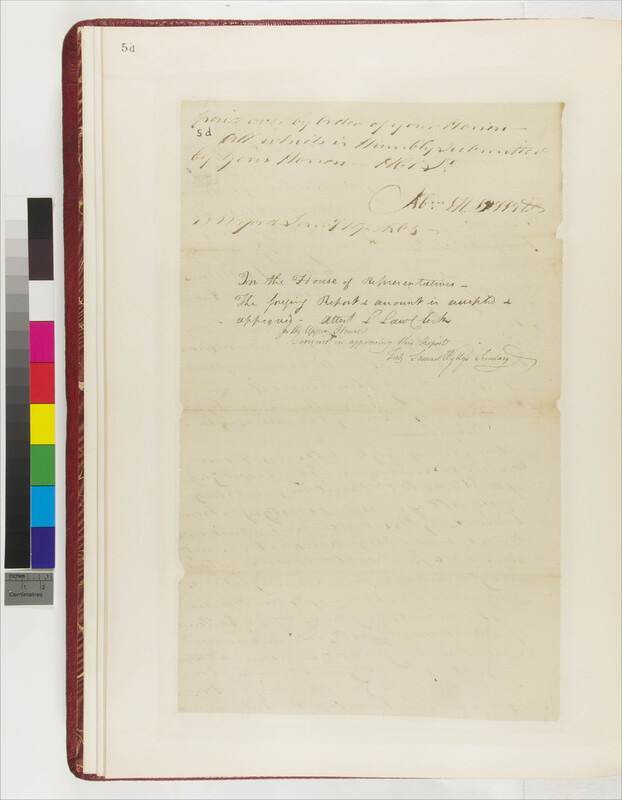 5d
paid over by Order of your Honors—
5d
All which is Humbly Submitted
by your Honors—
1803—
In the House of Representatives—
The forgoing Report & amount is accepted &
approved— Attest L Law Clerk
In the Upper House
Concurr'd in approving this Report
Test Samuel Wyllys Secretary
Inches 1
1 2
Centimetres